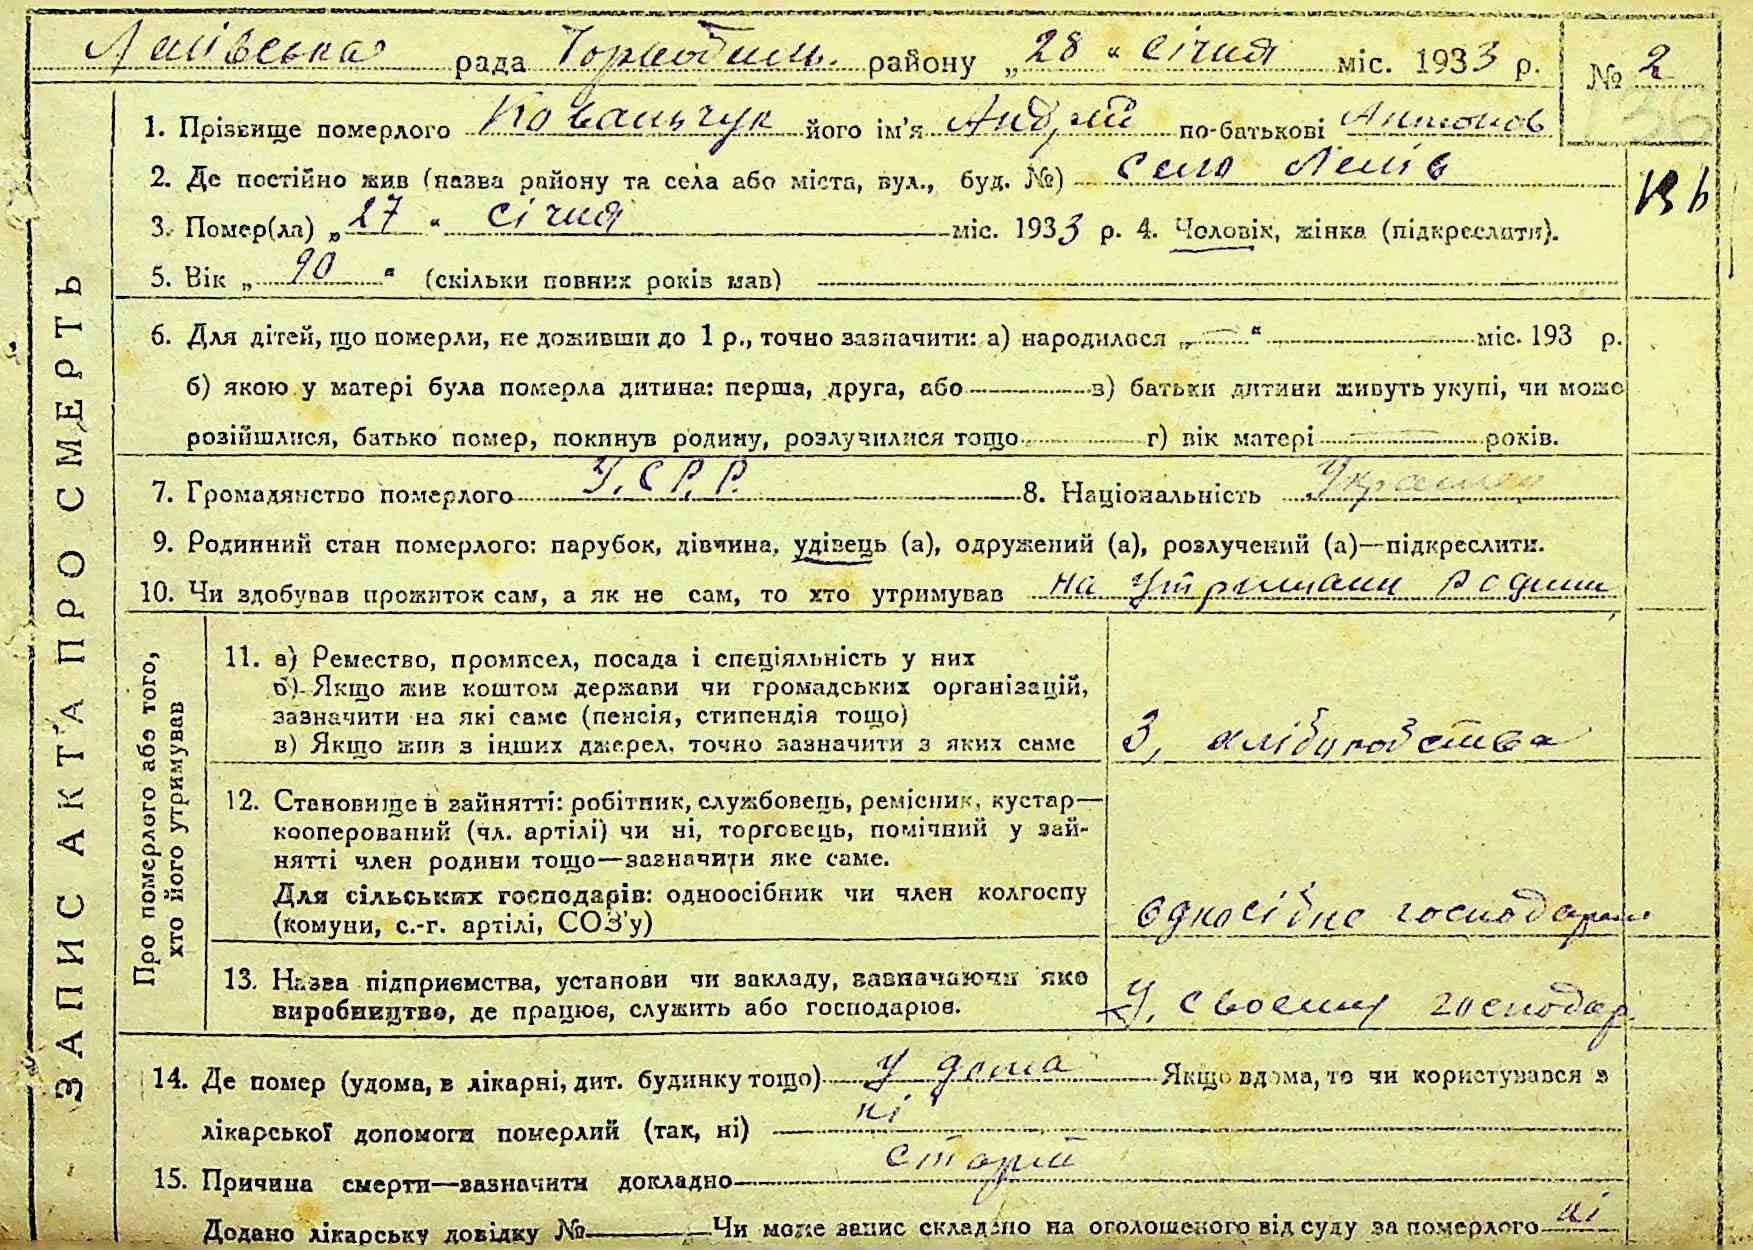 Лелівська рада Чорнобильс. району „28“ січня міс. 1933 р. № 2
1. Прізвище померлого Ковальчук його ім'я Андрій по-батькові Антонов
2. Де постійно жив (назва району та села або міста, вул., буд. №) село Лелів
3. Помер(ла) „27“ січня міс. 1933 р. 4. Чоловік, жінка (підкреслити).
5. Вік „90“ (скільки повних років мав)
6. Для дітей, що померли, не доживши до 1 р., точно зазначити: а) народилося „—“ міс. 193 р.
б) якою у матері була померла дитина: перша, друга, або в) батьки дитини живуть укупі, чи може
розійшлися, батько помер, покинув родину, розлучилися тощо г) вік матері років.
7. Громадянство померлого У.С.Р.Р. 8. Національність Украинец
9. Родинний стан померлого: парубок, дівчина, удівець (а), одружений (а), розлучений (а)—підкреслити.
10. Чи здобував прожиток сам, а як не сам, то хто утримував на утриманн родини
ЗАПИС АКТА ПРО СМЕРТЬ
Про померлого або того,
хто його утримував
11. а) Ремество, промисел, посада і спеціяльність у них
б) Якщо жив коштом держави чи громадських організацій,
зазначити на які саме (пенсія, стипендія тощо)
в) Якщо жив з інших джерел, точно зазначити з яких саме З, хліборобства
12. Становище в зайнятті: робітник, службовець, ремісник, кустар—
кооперований (чл. артілі) чи ні, торговець, помічний у зай-
нятті член родини тощо—зазначити яке саме.
Для сільських господарів: одноосібник чи член колгоспу
(комуни, с.-г. артілі, СОЗ'у) односібне господар
13. Назва підприємства, установи чи закладу, зазначаючи яке
виробництво, де працює, служить або господарює. У. своему господар
14. Де помер (удома, в лікарні, дит. будинку тощо) У дома Якщо вдома, то чи користувався з
лікарської допомоги померлий (так, ні) ні
15. Причина смерти—зазначити докладно старий
Додано лікарську довідку № Чи може запис складено на оголошеного від суду за померлого ні